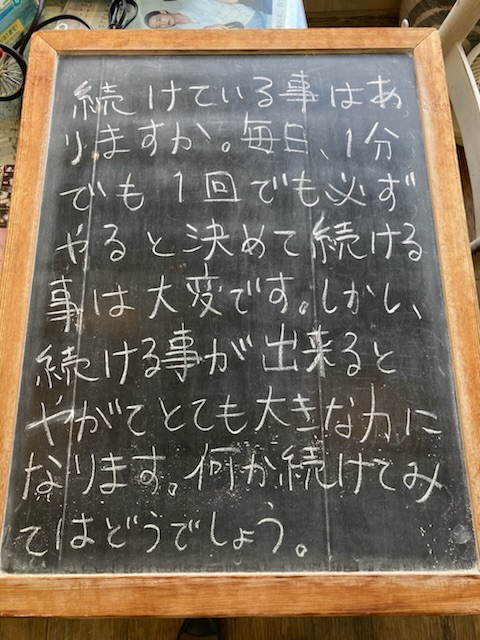 続けている事はあ
りますか。毎日、1分
でも1回でも必ず
やると決めて続ける
事は大変です。しかし、
続ける事が出来ると
やがてとても大きな力に
なります。何か続けてみ
てはどうでしょう。